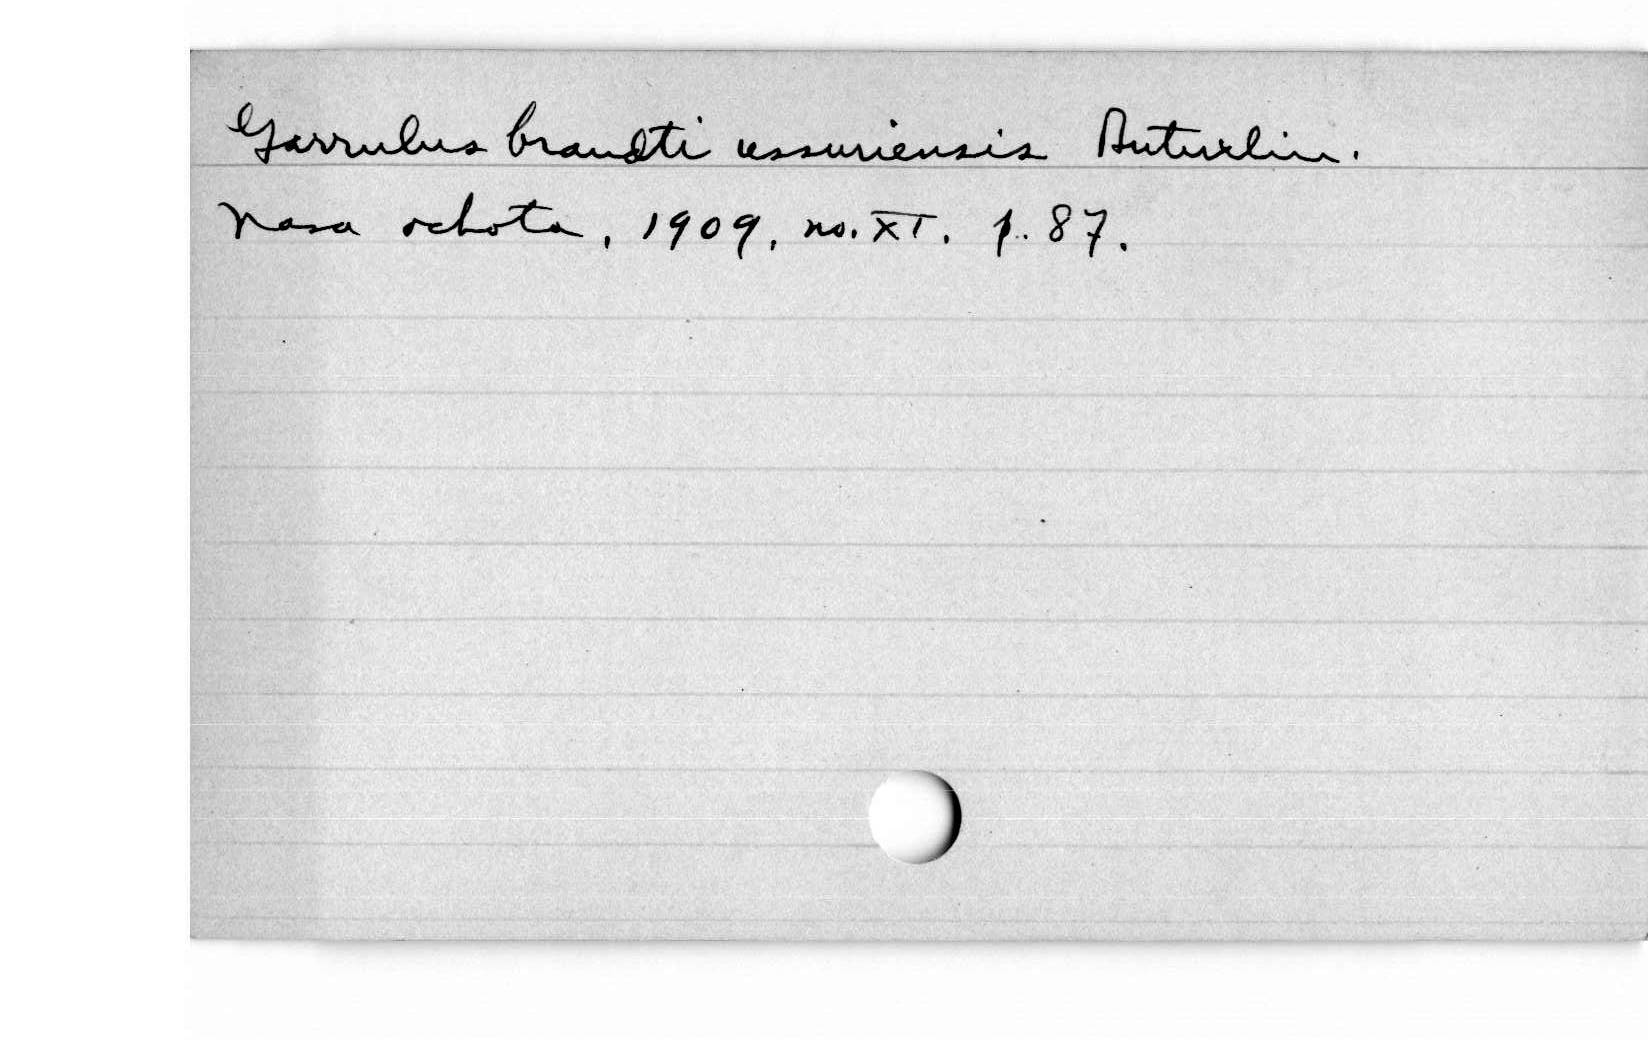 Garrulus brandti ussuriensis Buturlin.
Nasa ochota, 1909, no. XI. p. 87.